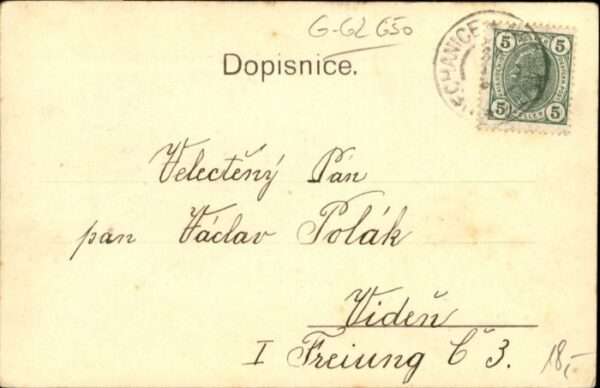 G-G2 650
Dopisnice.
NECHANICE
5 5
5 HELLER 5
Velectěný Pán
pan Václav Polák
Videň
I Freiung č 3.
18,-